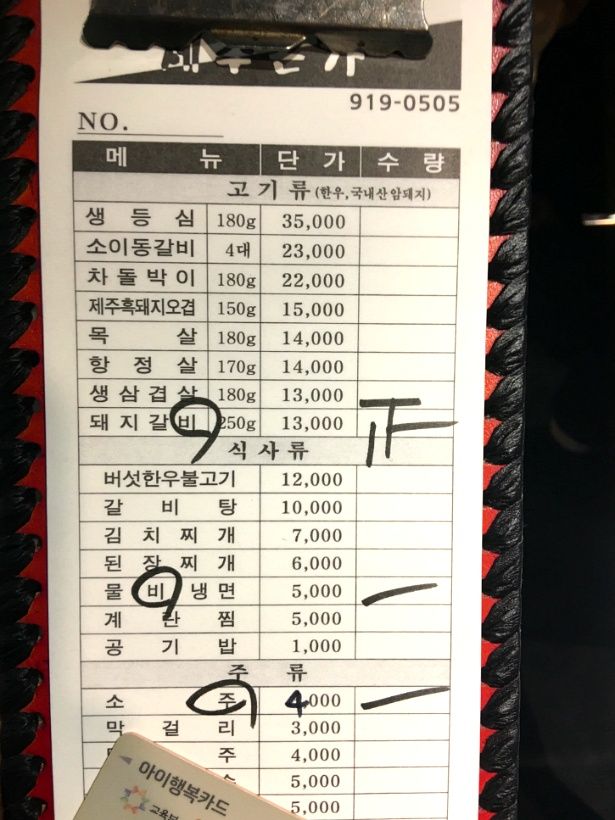 919-0505
NO.
메 뉴 단 가 수 량
고 기 류 (한우,국내산암돼지)
생 등 심 180g 35,000
소이동갈비 4대 23,000
차 돌 박 이 180g 22,000
제주흑돼지오겹 150g 15,000
목 살 180g 14,000
항 정 살 170g 14,000
생 삼 겹 살 180g 13,000
돼 지 갈 비 250g 13,000
식 사 류
버섯한우불고기 12,000
갈 비 탕 10,000
김 치 찌 개 7,000
된 장 찌 개 6,000
물 비 냉 면 5,000
계 란 찜 5,000
공 기 밥 1,000
주 류
소 주 4,000
막 걸 리 3,000
주 4,000
5,000
5,000
아이행복카드